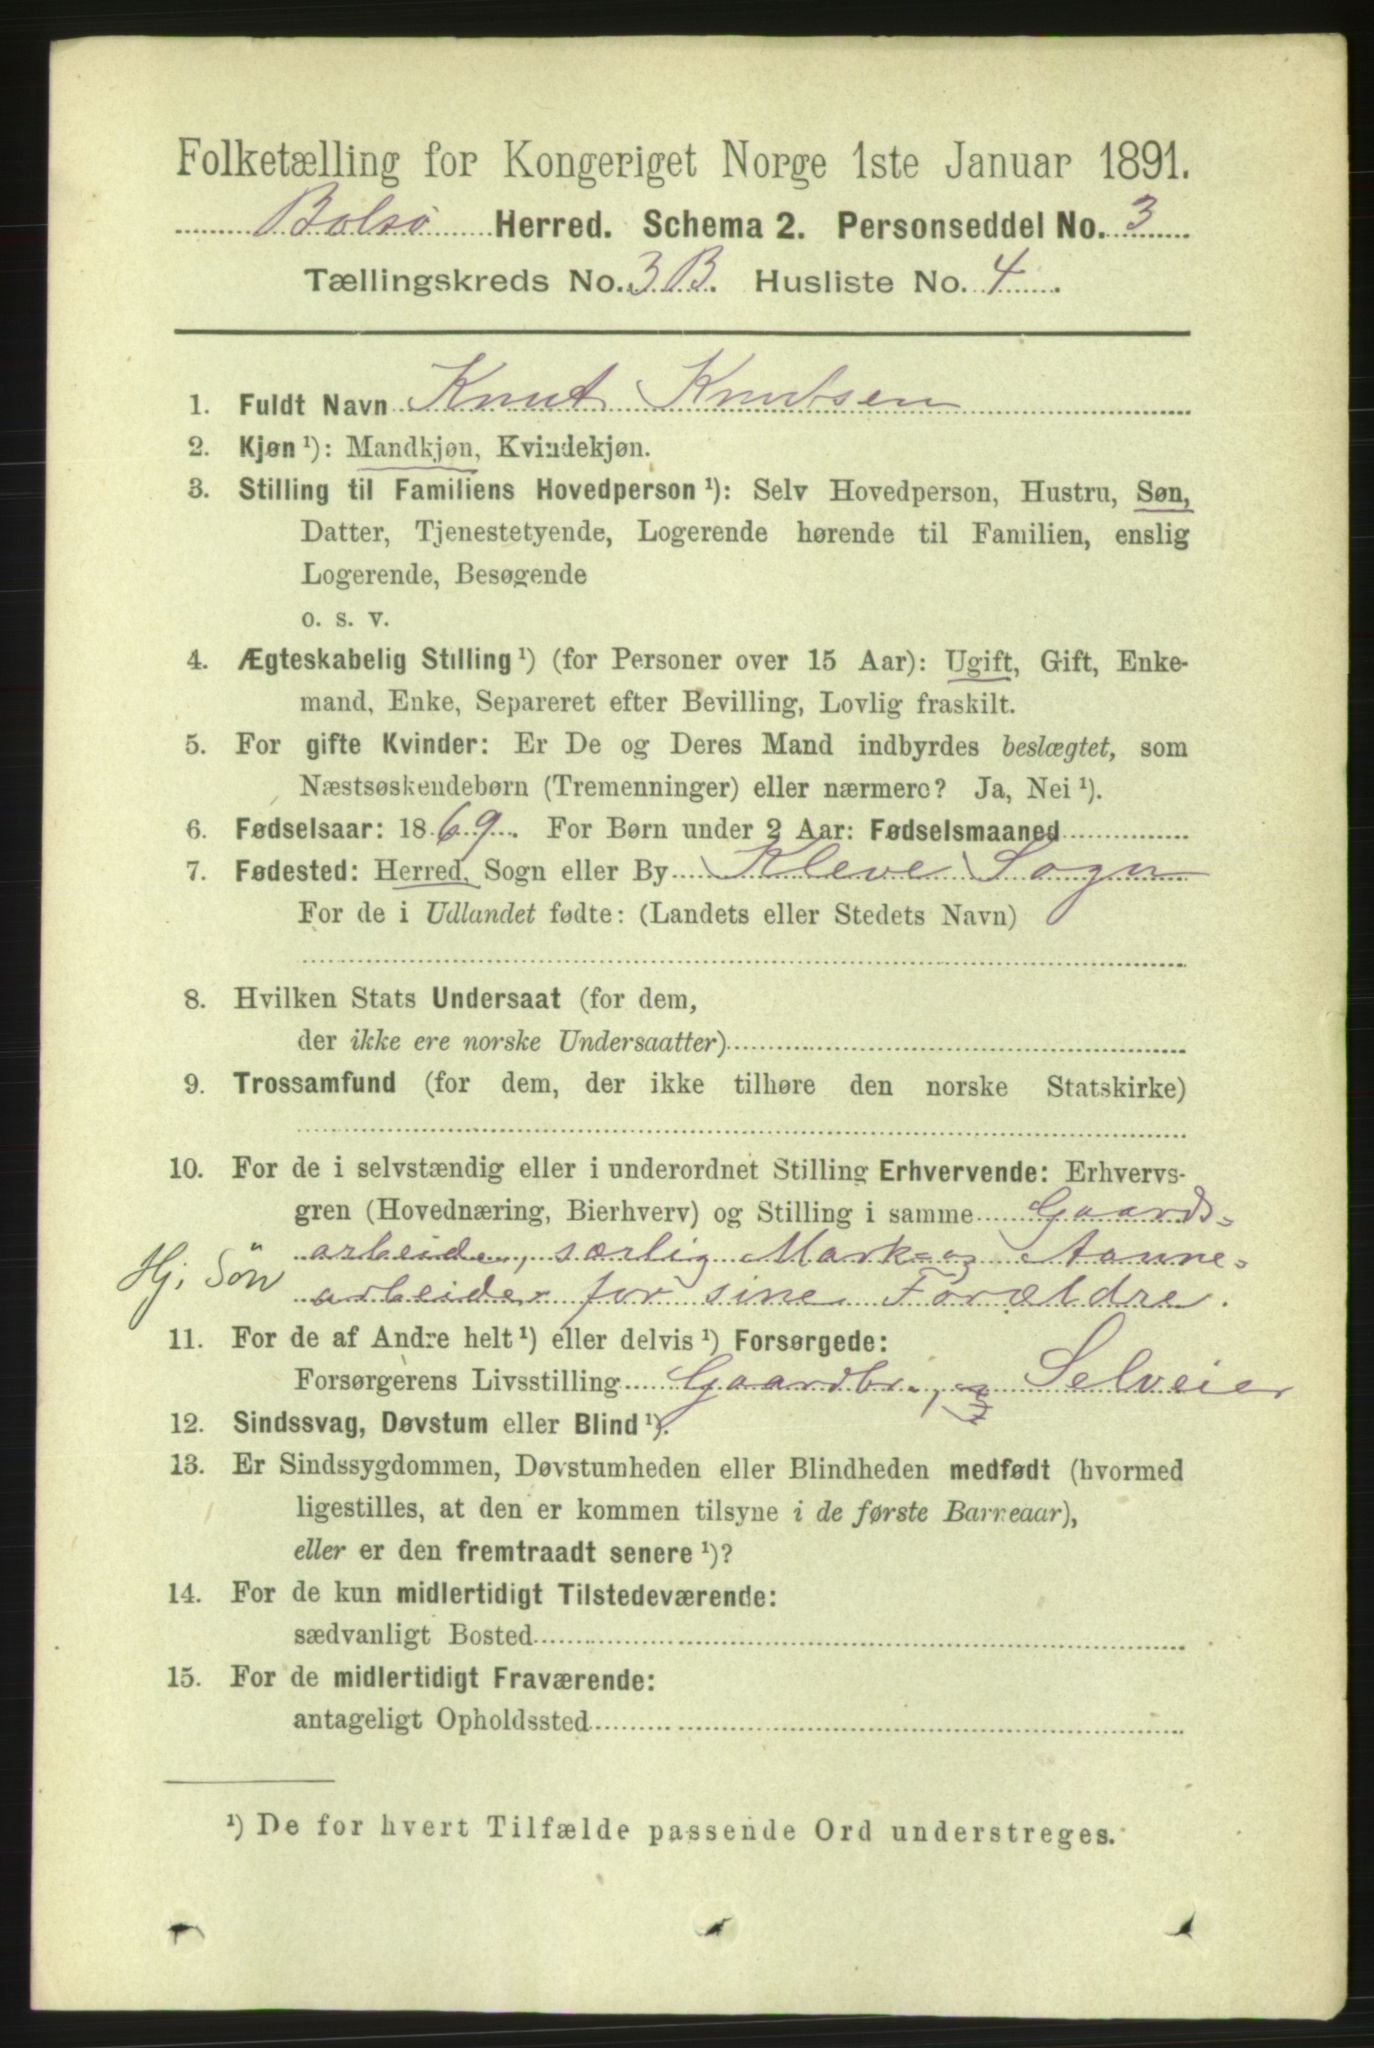 Folketælling for Kongeriget Norge 1ste Januar 1891.
Bolsø Herred. Schema 2. Personseddel No. 3
Tællingskreds No. 3B. Husliste No. 4
1. Fuldt Navn Knut Knutsen
2. Kjøn ¹): Mandkjøn, Kvindekjøn.
3. Stilling til Familiens Hovedperson ¹): Selv Hovedperson, Hustru, Søn,
Datter, Tjenestetyende, Logerende hørende til Familien, enslig
Logerende, Besøgende
o. s. v.
4. Ægteskabelig Stilling ¹) (for Personer over 15 Aar): Ugift, Gift, Enke-
mand, Enke, Separeret efter Bevilling, Lovlig fraskilt.
5. For gifte Kvinder: Er De og Deres Mand indbyrdes beslægtet, som
Næstsøskendebørn (Tremenninger) eller nærmere? Ja, Nei ¹).
6. Fødselsaar: 1869. For Børn under 2 Aar: Fødselsmaaned
7. Fødested: Herred, Sogn eller By Kleve Sogn
For de i Udlandet fødte: (Landets eller Stedets Navn)
8. Hvilken Stats Undersaat (for dem,
der ikke ere norske Undersaatter)
9. Trossamfund (for dem, der ikke tilhøre den norske Statskirke)
10. For de i selvstændig eller i underordnet Stilling Erhvervende: Erhvervs-
gren (Hovednæring, Bierhverv) og Stilling i samme Gaards-
arbeider, særlig Mark- og Aanne-
Hj. Søn arbeider for sine Forældre.
11. For de af Andre helt ¹) eller delvis ¹) Forsørgede:
Forsørgerens Livsstilling Gaardbr., Selveier
12. Sindssvag, Døvstum eller Blind ¹).
13. Er Sindssygdommen, Døvstumheden eller Blindheden medfødt (hvormed
ligestilles, at den er kommen tilsyne i de første Barneaar),
eller er den fremtraadt senere ¹)?
14. For de kun midlertidigt Tilstedeværende:
sædvanligt Bosted
15. For de midlertidigt Fraværende:
antageligt Opholdssted
¹) De for hvert Tilfælde passende Ord understreges.